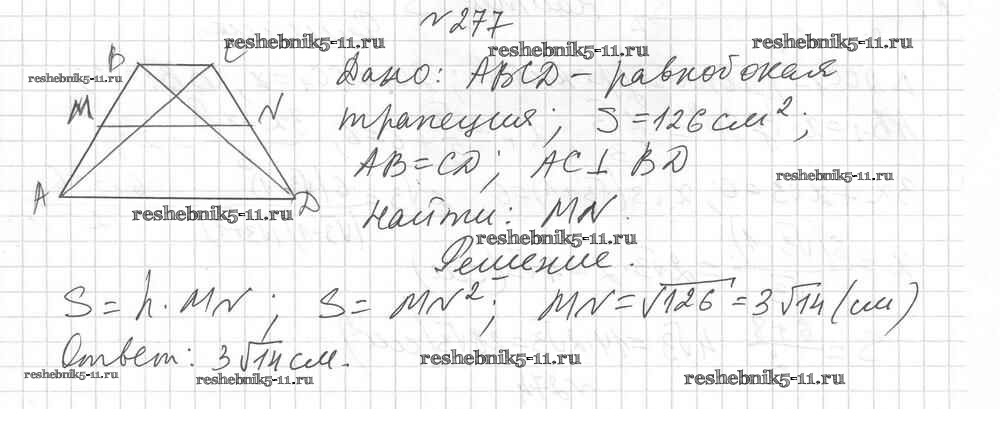 №277
reshebnik5-11.ru
reshebnik5-11.ru
reshebnik5-11.ru
reshebnik5-11.ru
B C
M N
A D
Дано: ABCD - равнобокая
трапеция; S=126 см²;
AB=CD; AC⊥BD
reshebnik5-11.ru
Найти: MN.
reshebnik5-11.ru
reshebnik5-11.ru
Решение.
S=h·MN; S=MN²; MN=√126=3√14(см)
Ответ: 3√14 см.
reshebnik5-11.ru
reshebnik5-11.ru
reshebnik5-11.ru
reshebnik5-11.ru